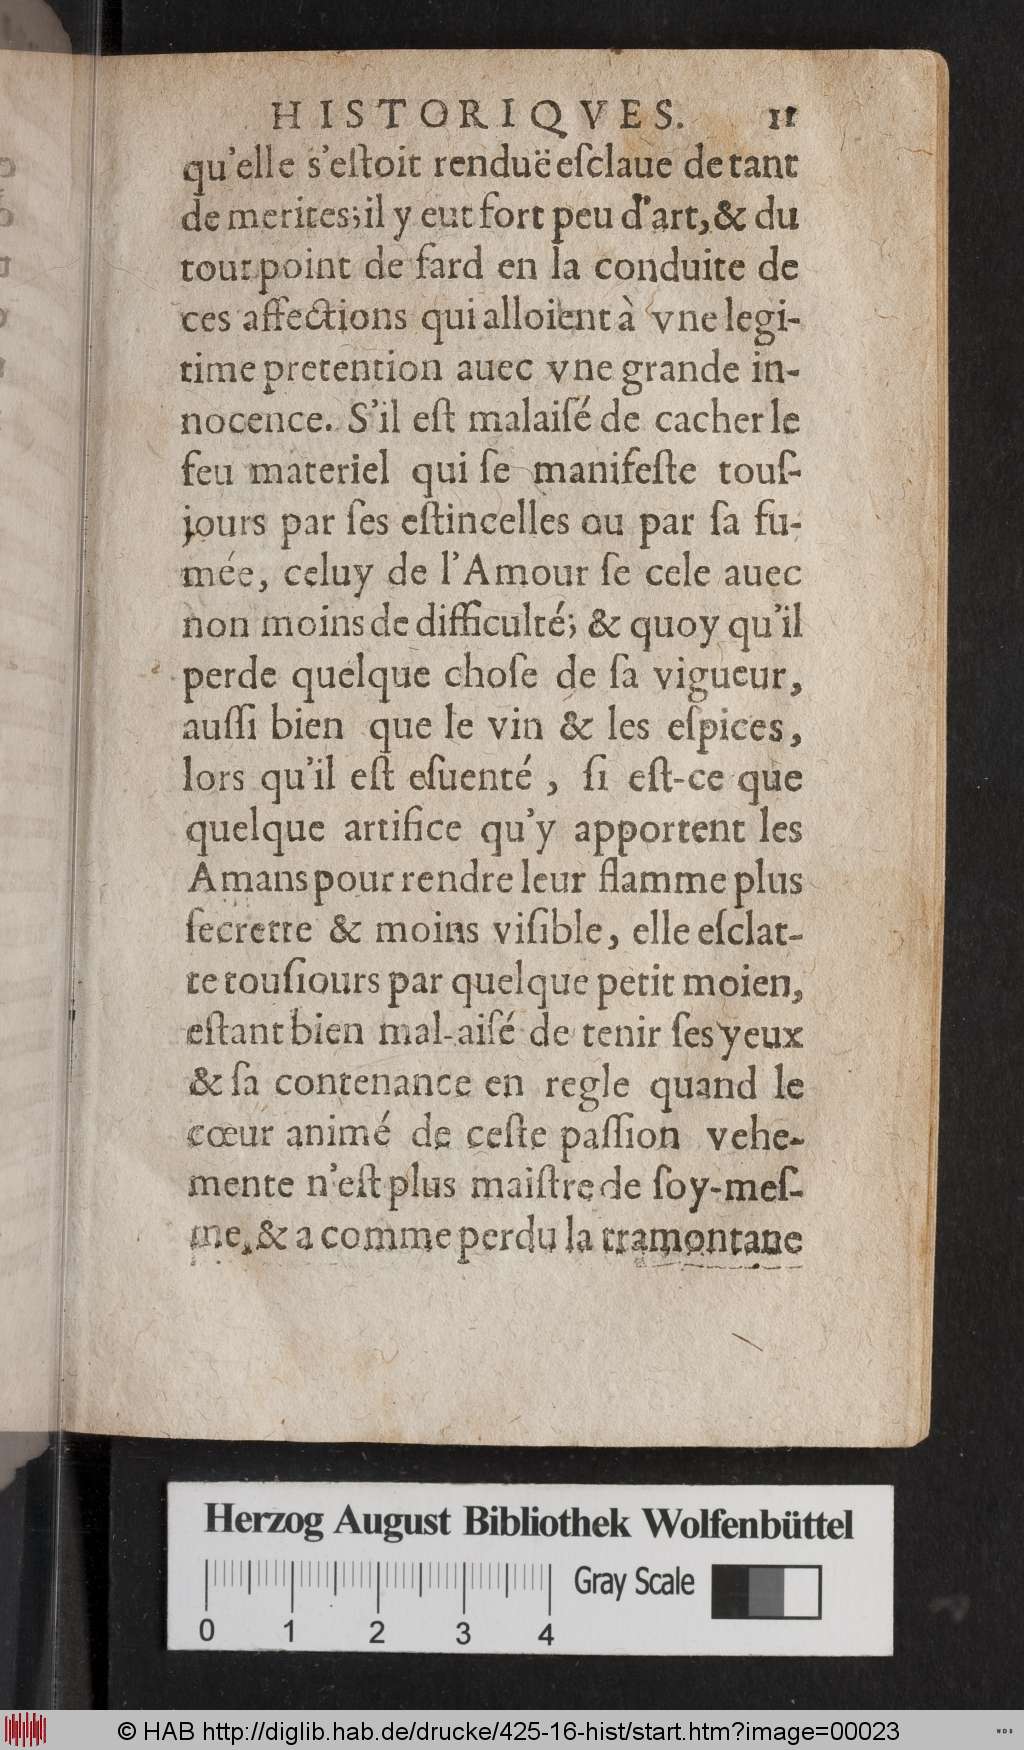 HISTORIQVES. 11
qu'elle s'eſtoit renduë eſclaue de tant
de merites; il y eut fort peu d'art, & du
tout point de fard en la conduite de
ces affections qui alloient à vne legi-
time pretention auec vne grande in-
nocence. S'il eſt malaiſé de cacher le
feu materiel qui ſe manifeſte touſ-
jours par ſes eſtincelles ou par ſa fu-
mée, celuy de l'Amour ſe cele auec
non moins de difficulté; & quoy qu'il
perde quelque choſe de ſa vigueur,
auſſi bien que le vin & les eſpices,
lors qu'il eſt eſuenté, ſi eſt-ce que
quelque artifice qu'y apportent les
Amans pour rendre leur flamme plus
ſecrette & moins viſible, elle eſclat-
te touſiours par quelque petit moien,
eſtant bien mal-aiſé de tenir ſes yeux
& ſa contenance en regle quand le
cœur animé de ceſte paſſion vehe-
mente n'eſt plus maiſtre de ſoy-meſ-
me, & a comme perdu la tramontane
Herzog August Bibliothek Wolfenbüttel
Gray Scale
0 1 2 3 4
© HAB http://diglib.hab.de/drucke/425-16-hist/start.htm?image=00023